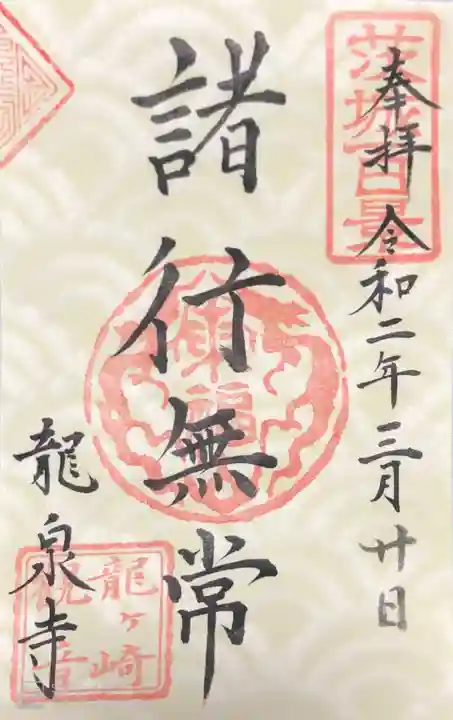 茨城百景
奉拝 令和二年三月廿日
諸行無常
龍泉寺
龍ヶ崎
観音